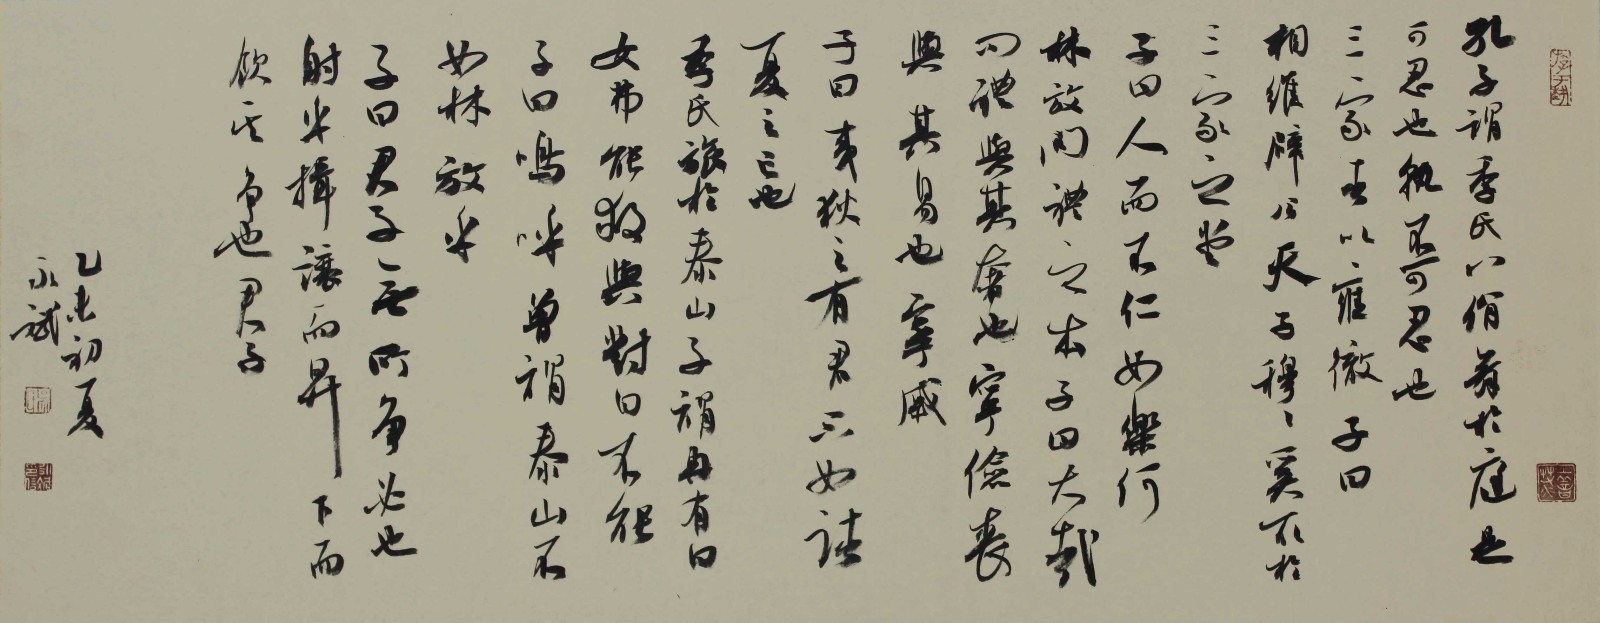 孔子謂季氏八佾舞於庭是
可忍也孰不可忍也
三家者以雍徹子曰
相維辟公天子穆〻奚取於
三家之堂
子曰人而不仁如樂何
林放問禮之本子曰大哉
問禮與其奢也寧儉喪
與其易也寧戚
子曰夷狄之有君不如諸
夏之亡也
季氏旅於泰山子謂冉有曰
女弗能救與對曰不能
子曰嗚呼曾謂泰山不
如林放乎
子曰君子無所爭必也
射乎揖讓而昇下而
飲其爭也君子
乙未初夏
永斌